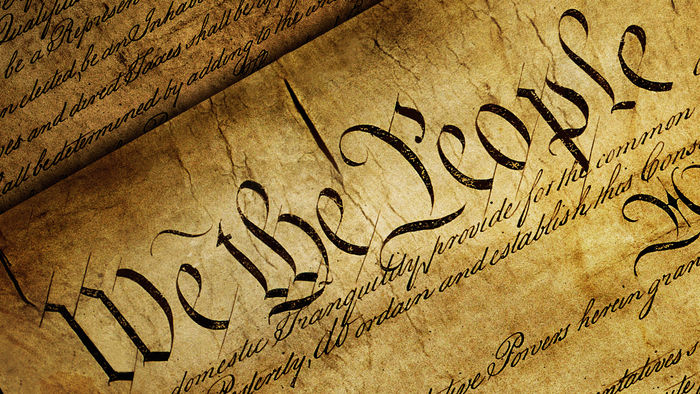 Qualific
be a Represen
n elected, be an Inhab
ves and direct Taxes shall be
all be determined by adding to the wh
We the People
domestic Tranquility, provide for the common
Posterity, do ordain and establish this Cons
tive Powers herein gran
entatives s